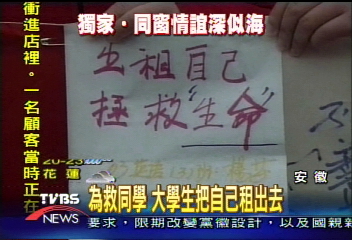 獨家‧同窗情誼深似海
衝進店裡。一名顧客當時正在
出租自己
拯救"生命"
20-23
花蓮
安徽
為救同學 大學生把自己租出去
TVBS
NEWS
要求，限期改變黨徽設計，以及國親新